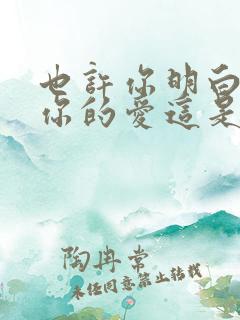 也許你明白
你的愛這是
陶冉常
未任同意禁止转载